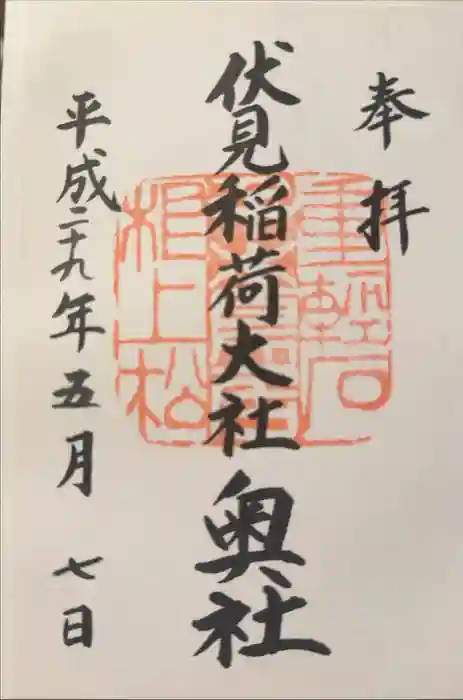 奉拝
伏見稲荷大社 奥社
平成二十九年五月七日